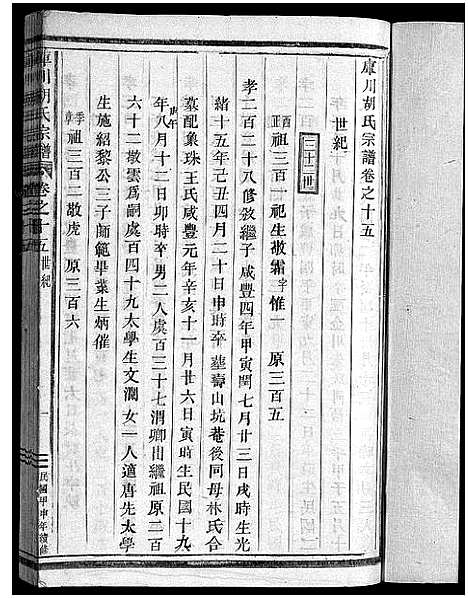 庫川胡氏宗譜卷之十五
世紀
三十世
酉正 祖三百一祀生敬霜字惟一 原三百五
孝二百二十八修敘繼子咸豐四年甲寅閏七月廿三日戌時生光
緒十五年己丑四月二十日申時卒塟壽山坑菴後同母林氏合
墓配象珠王氏咸豐元年辛亥十一月廿六日寅時生民國十九
年庚午八月十二日卯時卒男二人虞百三十七渭卿出繼祖原二百
六十二敬雲爲嗣虞百四十九太學生文瀾女一人適唐先太學
生施紹黎公三子師範畢業生炳催
季章 祖三百二敬虎 原三百六
庫川胡氏宗譜 卷之十五 世紀
一
民國甲申年續修